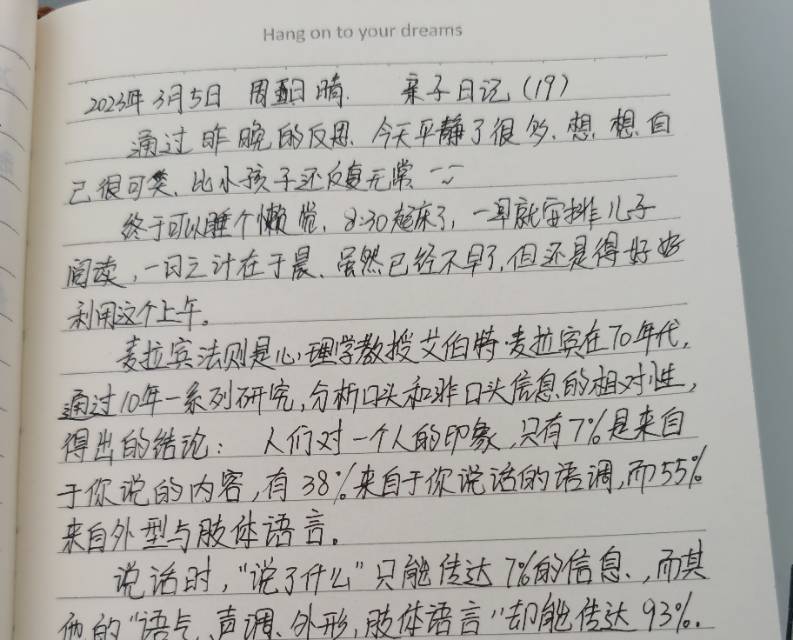 Hang on to your dreams
2023年3月5日 周日 晴. 亲子日记(19)
通过昨晚的反思、今天平静了很多、想想自
己很可笑、比小孩子还反复无常
终于可以睡个懒觉、8:30起床了,一早就安排儿子
阅读,一日之计在于晨、虽然已经不早了,但还是得好好
利用这个上午。
麦拉宾法则是心理学教授艾伯特·麦拉宾在70年代,
通过10年一系列研究,分析口头和非口头信息的相对性,
得出的结论: 人们对一个人的印象,只有7%是来自
于你说的内容,有38%来自于你说话的语调,而55%
来自外型与肢体语言。
说话时,“说了什么”只能传达7%的信息、,而其
他的“语气、声调、外形,肢体语言”却能传达93%.